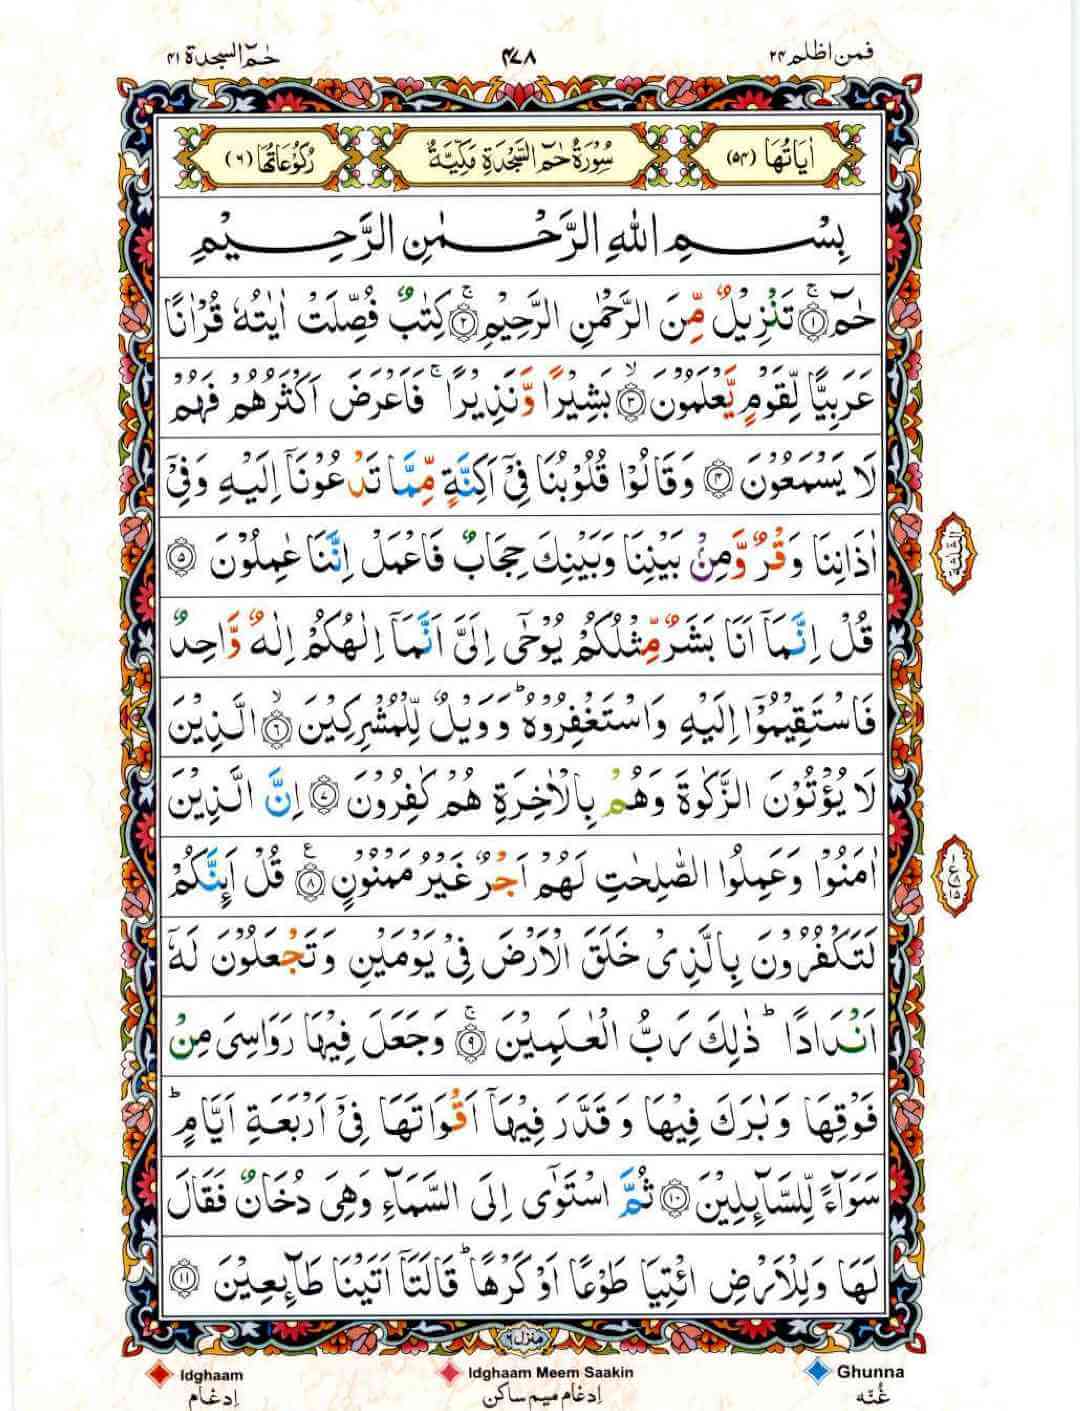 فمن اظلم ۲۴
۴۷۸
حٰمٓ السجدة ۴۱
اٰيَاتُهَا (۵۴)
سُوْرَةُ حٰمٓ السَّجْدَةِ مَكِّيَّةٌ
رُكُوْعَاتُهَا (۶)
بِسْمِ اللهِ الرَّحْمٰنِ الرَّحِيْمِ
حٰمٓ ۚ۝۱ تَنْزِيْلٌ مِّنَ الرَّحْمٰنِ الرَّحِيْمِ ۚ۝۲ كِتٰبٌ فُصِّلَتْ اٰيٰتُهٗ قُرْاٰنًا
عَرَبِيًّا لِّقَوْمٍ يَّعْلَمُوْنَ ۙ۝۳ بَشِيْرًا وَّنَذِيْرًا ۚ فَاَعْرَضَ اَكْثَرُهُمْ فَهُمْ
لَا يَسْمَعُوْنَ ۝۴ وَقَالُوْا قُلُوْبُنَا فِيْٓ اَكِنَّةٍ مِّمَّا تَدْعُوْنَآ اِلَيْهِ وَفِيْٓ
اٰذَانِنَا وَقْرٌ وَّمِنْۢ بَيْنِنَا وَبَيْنِكَ حِجَابٌ فَاعْمَلْ اِنَّنَا عٰمِلُوْنَ ۝۵
قُلْ اِنَّمَآ اَنَا بَشَرٌ مِّثْلُكُمْ يُوْحٰٓى اِلَيَّ اَنَّمَآ اِلٰهُكُمْ اِلٰهٌ وَّاحِدٌ
فَاسْتَقِيْمُوْٓا اِلَيْهِ وَاسْتَغْفِرُوْهُ ؕ وَوَيْلٌ لِّلْمُشْرِكِيْنَ ۙ۝۶ الَّذِيْنَ
لَا يُؤْتُوْنَ الزَّكٰوةَ وَهُمْ بِالْاٰخِرَةِ هُمْ كٰفِرُوْنَ ۝۷ اِنَّ الَّذِيْنَ
اٰمَنُوْا وَعَمِلُوا الصّٰلِحٰتِ لَهُمْ اَجْرٌ غَيْرُ مَمْنُوْنٍ ۝۸ۧ قُلْ اَىِٕنَّكُمْ
لَتَكْفُرُوْنَ بِالَّذِيْ خَلَقَ الْاَرْضَ فِيْ يَوْمَيْنِ وَتَجْعَلُوْنَ لَهٗٓ
اَنْدَادًا ؕ ذٰلِكَ رَبُّ الْعٰلَمِيْنَ ۚ۝۹ وَجَعَلَ فِيْهَا رَوَاسِيَ مِنْ
فَوْقِهَا وَبٰرَكَ فِيْهَا وَقَدَّرَ فِيْهَآ اَقْوَاتَهَا فِيْٓ اَرْبَعَةِ اَيَّامٍ ؕ
سَوَآءً لِّلسَّآىِٕلِيْنَ ۝۱۰ ثُمَّ اسْتَوٰٓى اِلَى السَّمَآءِ وَهِيَ دُخَانٌ فَقَالَ
لَهَا وَلِلْاَرْضِ ائْتِيَا طَوْعًا اَوْ كَرْهًا ؕ قَالَتَآ اَتَيْنَا طَآىِٕعِيْنَ ۝۱۱
الثلثة
منزل ۶
Idghaam
اِدغام
Idghaam Meem Saakin
اِدغام میم ساکن
Ghunna
غُنّه